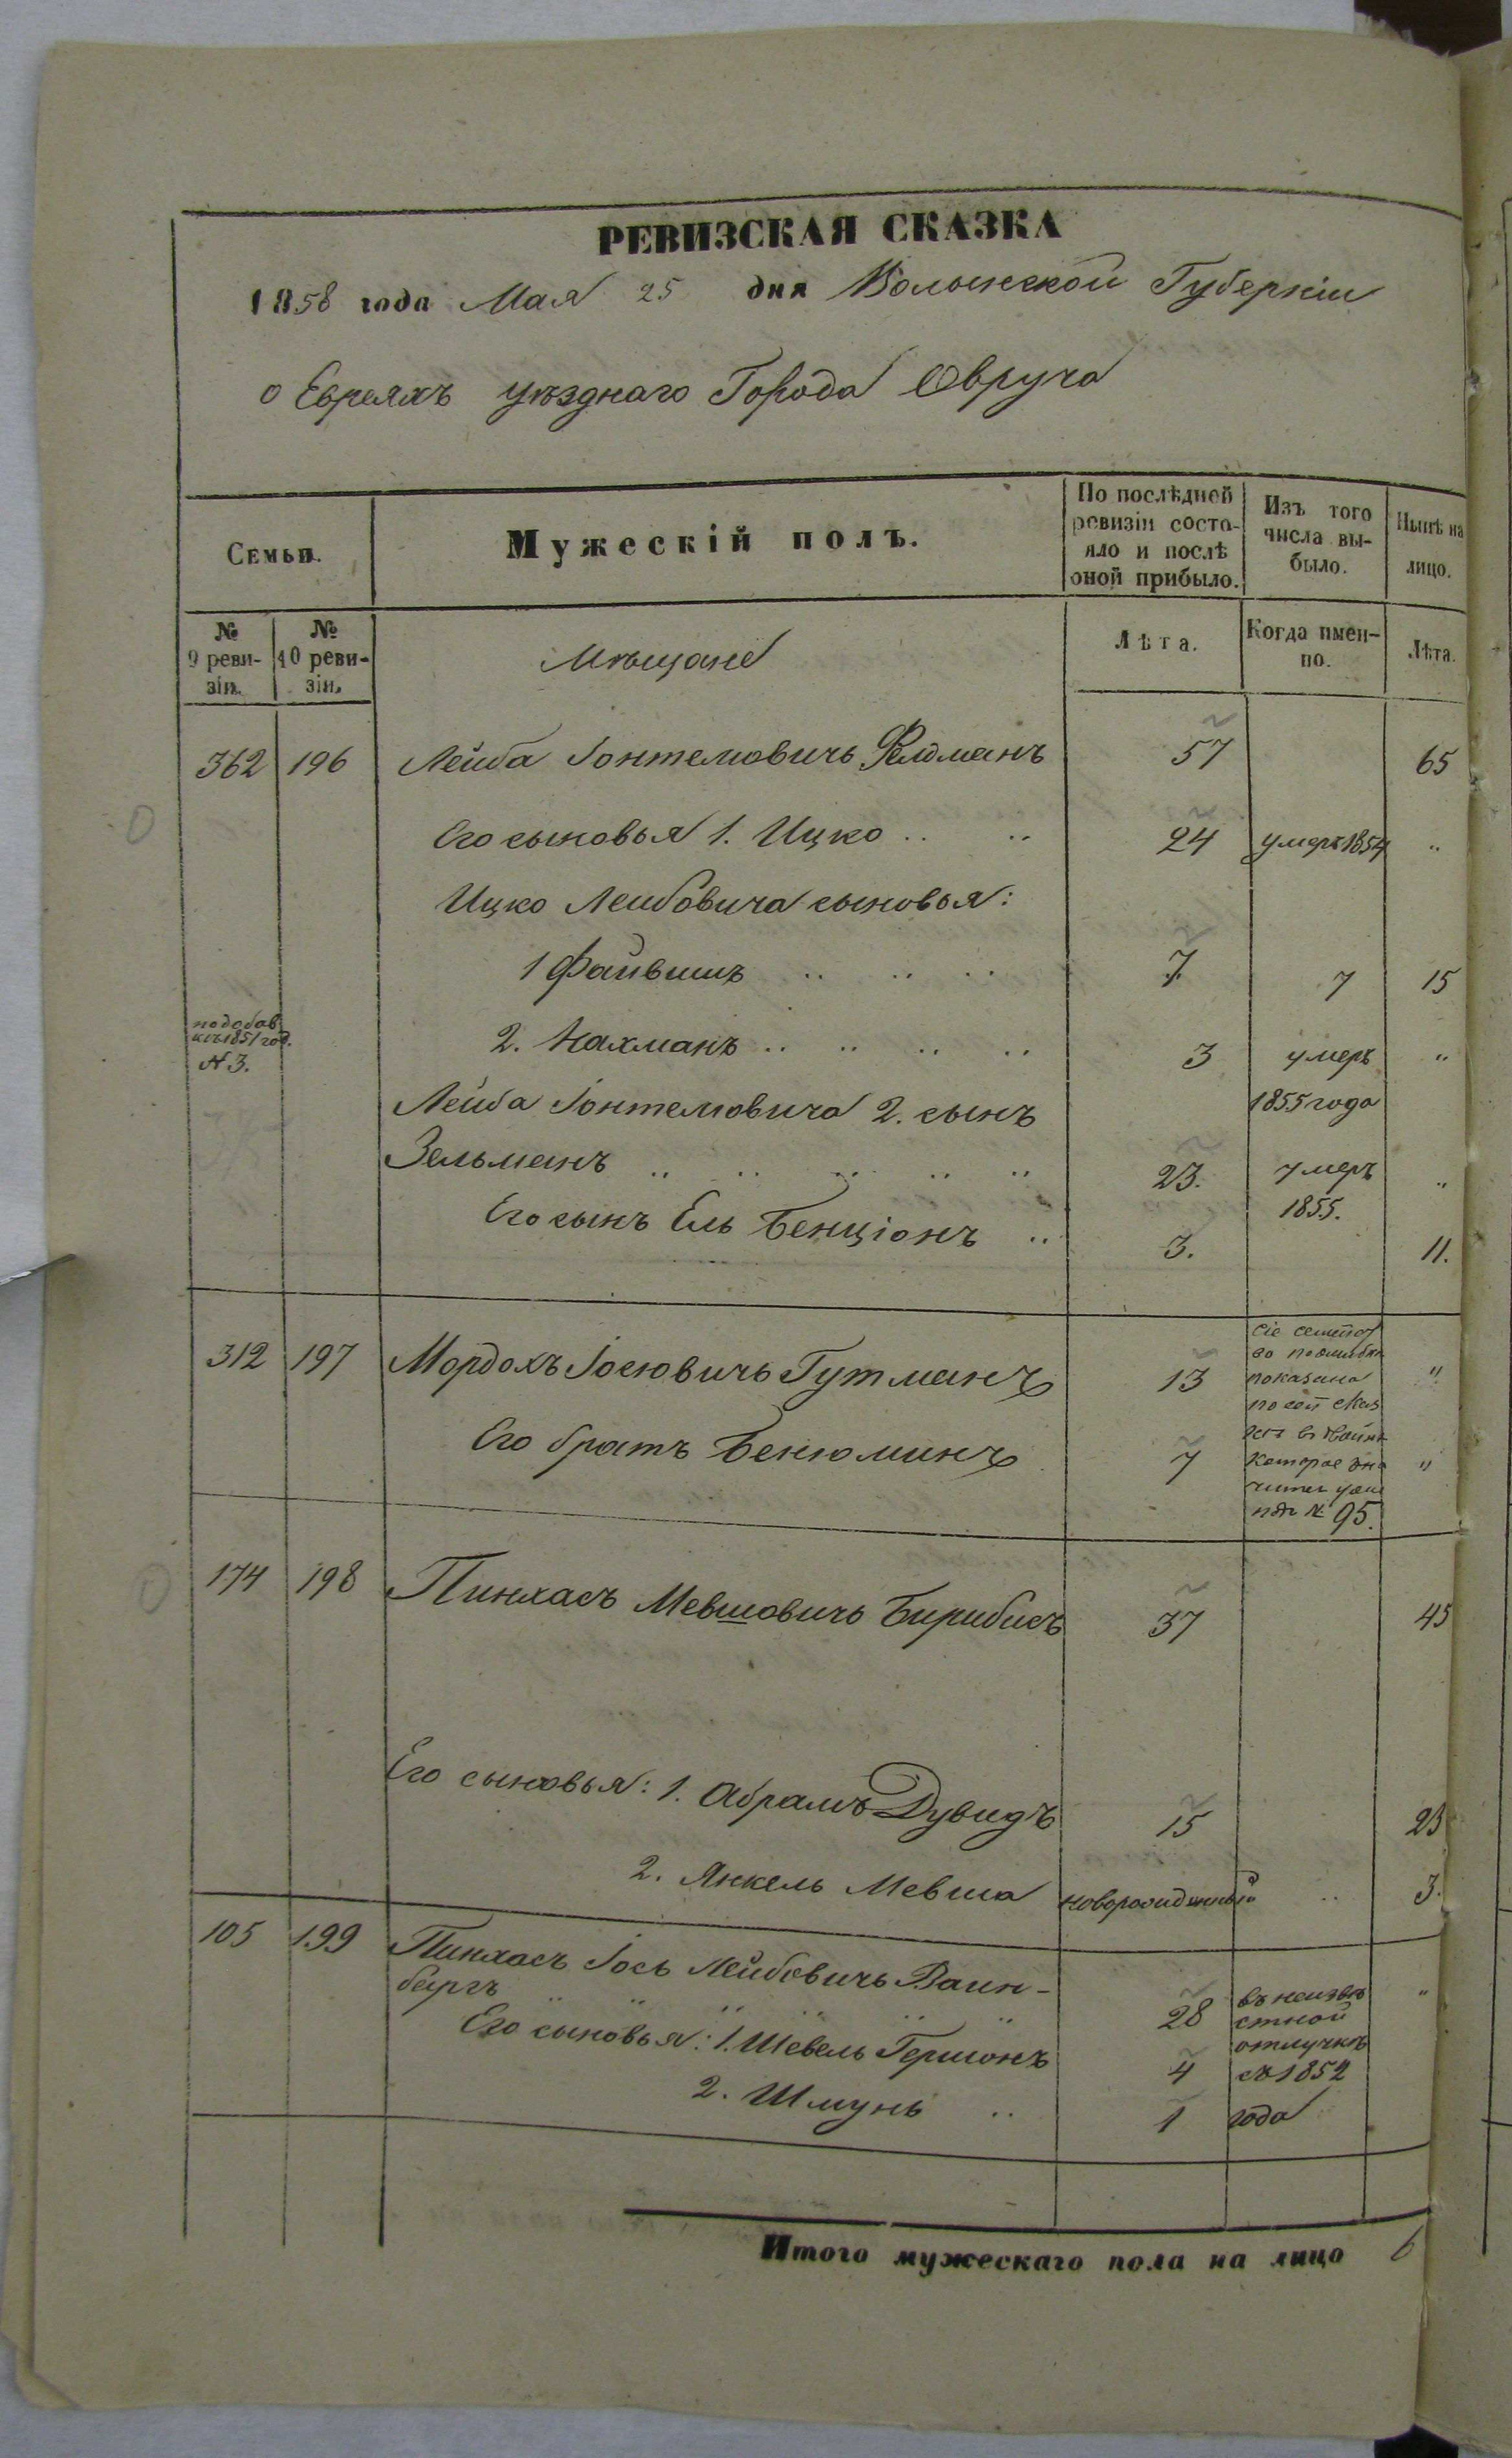 РЕВИЗСКАЯ СКАЗКА
1858 года Мая 25 дня Волынской Губерніи
о Евреяхъ уѣзднаго Города Овруча
Семьи.
Мужескій полъ.
По послѣдней ревизіи состо-
яло и послѣ
оной прибыло.
Изъ того
числа вы-
было.
Нынѣ на
лицо.
№
9 реви-
зіи.
№
10 реви-
зіи.
Мѣщане
Лѣта.
Когда имен-
но.
Лѣта.
362 196 Лейба Іонтемовичь Фелдманъ 57 65
Его сыновья 1. Ицко .. .. 24 умеръ 1854 ..
Ицко Леибовича сыновья:
1 Файвишъ .. .. .. 7. 7 15
подобав
къ 1851 год.
№ 3.
2. Нахманъ .. .. .. .. 3 умеръ "
1855 года
Лейба Іонтемовича 2. сынъ
Зельманъ .. .. .. .. .. 23. умеръ ..
1855.
Его сынъ Ель Бенціонъ .. 3. 11.
312 197 Мордохъ Іосювичь Гутманъ 13 "
Его братъ Бенюминъ 7 "
сіе семейст
во поошибки
показано
по сей сказ
которое зна
читъ
подъ № 95.
174 198 Пинхасъ Мевшовичь Бирибисъ 37 45
Его сыновья: 1. Абрамъ Дувидъ 15 23
2. Янкель Мевша новорожденный .. 3.
105 199 Пинхасъ Іось Лейбовичь Ваин-
бергъ .. .. .. .. .. 28 "
Его сыновья: 1. Шевель Гершонъ 4
2. Шмунь .. 1
въ неизвѣ
стной
отлучкѣ
съ 1852
года
Итого мужескаго пола на лицо 6